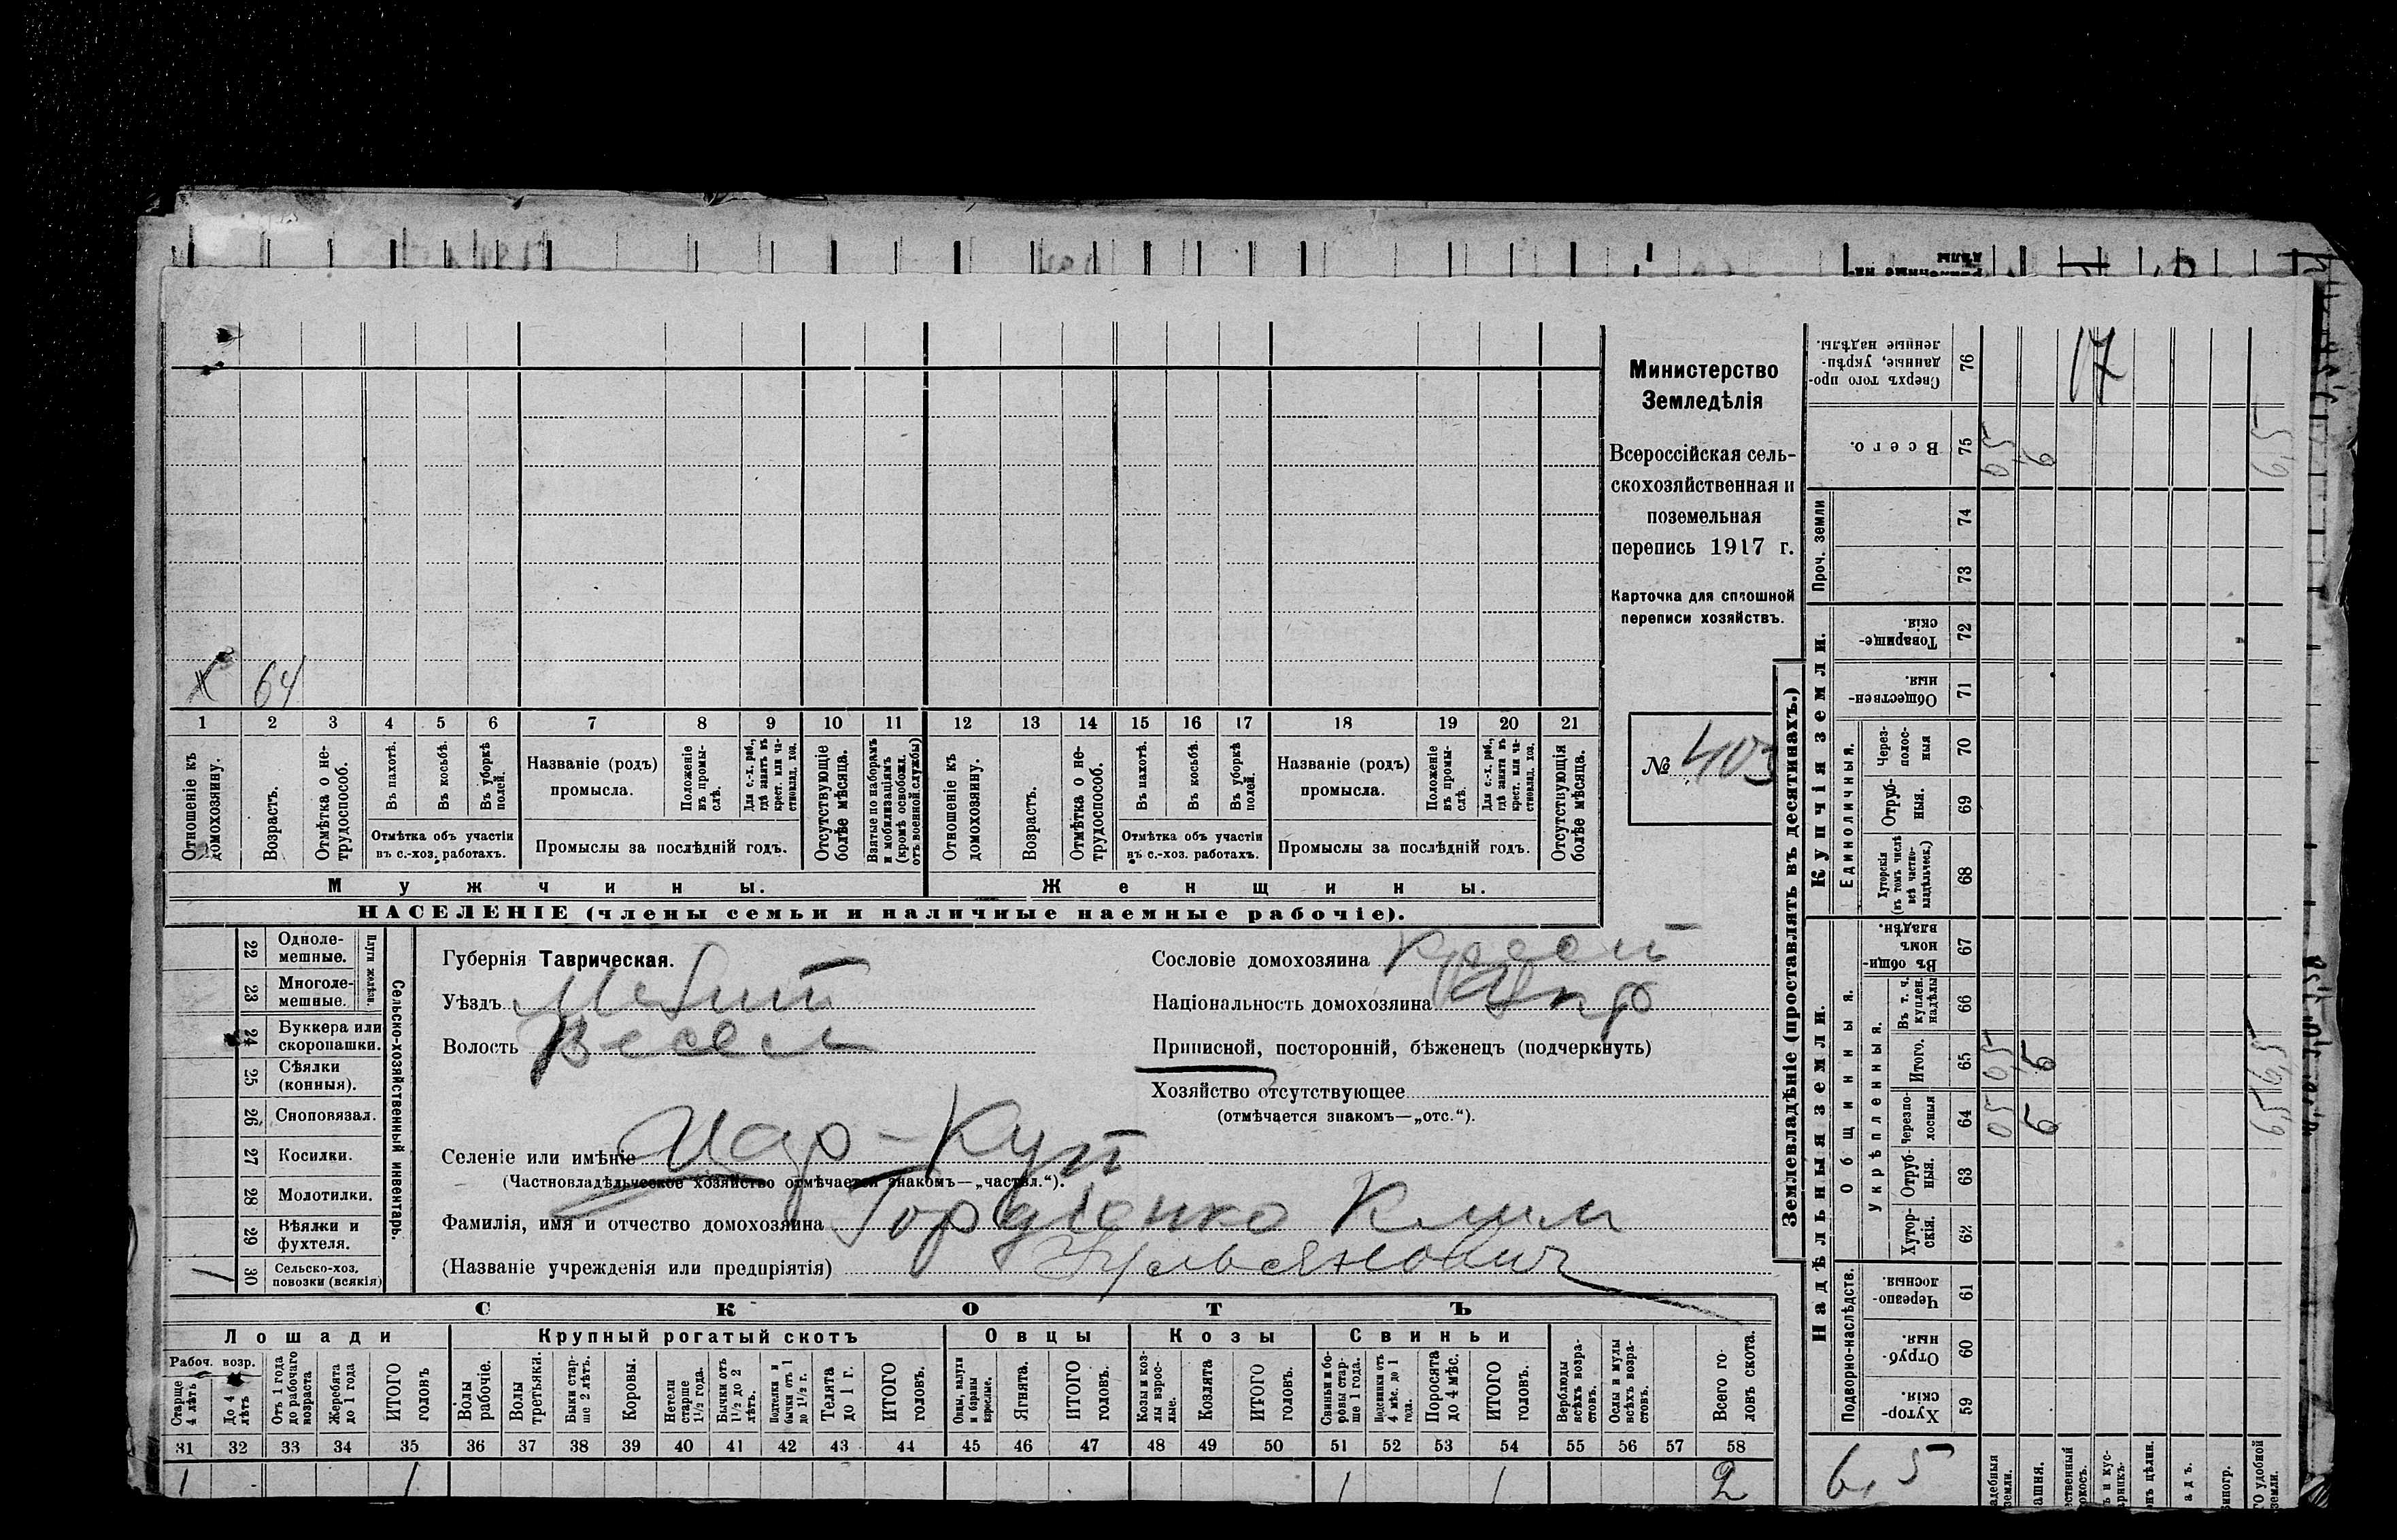 Министерство
Земледѣлія
Всероссійская сель-
скохозяйственная и
поземельная
перепись 1917 г.
Карточка для сплошной
переписи хозяйствъ.
№ 403
X 64
1 2 3 4 5 6 7 8 9 10 11 12 13 14 15 16 17 18 19 20 21
Отношеніе къ домохозяину.
Возрастъ.
Отмѣтка о не-трудоспособ.
Въ пахотѣ.
Въ косьбѣ.
Въ уборкѣ полей.
Отмѣтка объ участіи
въ с.-хоз. работахъ.
Названіе (родъ)
промысла.
Положеніе въ промы-слѣ.
Для с.-х. раб., гдѣ занятъ въ крест. или ча-стновлад. хоз.
Промыслы за послѣдній годъ.
Отсутствующіе болѣе мѣсяца.
Взятые по наборамъ и мобилизаціямъ (кромѣ освобожд. отъ военной службы)
Отношеніе къ домохозяину.
Возрастъ.
Отмѣтка о не-трудоспособ.
Въ пахотѣ.
Въ косьбѣ.
Въ уборкѣ полей.
Отмѣтка объ участіи
въ с.-хоз. работахъ.
Названіе (родъ)
промысла.
Положеніе въ промы-слѣ.
Для с.-х. раб., гдѣ занята въ крест. или ча-стновлад. хоз.
Промыслы за послѣдній годъ.
Отсутствующія болѣе мѣсяца.
Мужчины.
Женщины.
НАСЕЛЕНІЕ (члены семьи и наличные наемные рабочіе).
22 Одноле-мешные.
23 Многоле-мешные.
Плуги желѣзн.
24 Буккера или скоропашки.
25 Сѣялки (конныя).
26 Сноповязал.
27 Косилки.
28 Молотилки.
29 Вѣялки и фухтеля.
1 30 Сельско-хоз. повозки (всякія)
Сельско-хозяйственный инвентарь.
Губернія Таврическая.
Уѣздъ Мелит
Волость Весел
Сословіе домохозяина Крест
Національность домохозяина Укр
Приписной, посторонній, бѣженецъ (подчеркнуть)
Хозяйство отсутствующее
(отмѣчается знакомъ—„отс.“).
Селеніе или имѣніе Мар-Кут
(Частновладѣльческое хозяйство отмѣчается знакомъ—„частвл.“).
Фамилія, имя и отчество домохозяина Гордіенко Клим
(Названіе учрежденія или предпріятія) Емельянович
СКОТЪ
Лошади
Крупный рогатый скотъ
Овцы
Козы
Свиньи
Рабоч. возр.
Старше 4 лѣтъ
До 4 лѣтъ
Отъ 1 года до рабочаго возраста
Жеребята до 1 года
ИТОГО головъ
Волы рабочіе.
Волы третьяки.
Быки стар-ше 2 лѣтъ.
Коровы.
Нетели старше 1½ года.
Бычки отъ 1½ до 2 лѣтъ.
Подтелки и бычки отъ 1 до 1½ г.
Телята до 1 г.
ИТОГО головъ.
Овцы, валухи и бараны взрослые.
Ягнята.
ИТОГО головъ.
Козы и коз-лы взрос-лые.
Козлята
ИТОГО головъ.
Свиньи и бо-ровы стар-ше 1 года.
Подсвинки отъ 4 мѣс. до 1 года.
Поросята до 4 мѣс.
ИТОГО головъ.
Верблюды всѣхъ возра-стовъ.
Ослы и мулы всѣхъ возра-стовъ.
Всего го-ловъ скота.
31 32 33 34 35 36 37 38 39 40 41 42 43 44 45 46 47 48 49 50 51 52 53 54 55 56 57 58
1 1 1 1 2
Землевладѣніе (проставлять въ десятинахъ.)
Купчія земли.
Надѣльныя земли.
Сверхъ того про-данные, укрѣп-ленные надѣлы. 76 17
Всего. 75 05 6
Проч. земли 74 73
Товарище-скія. 72
Обществен-ныя. 71
Единоличныя.
Через-полос-ныя 70
Отруб-ныя. 69
Хуторскія (въ томъ числѣ всѣ частно-владѣльческ.) 68
Общинныя.
Въ общи-номъ владѣн. 67
Укрѣпленныя.
Въ т. ч. куплен. надѣлы 66
Итого. 65 05 6
Черезпо-лосныя 64 05 6
Отруб-ныя. 63
Хутор-скія. 62
Подворно-наслѣдств.
Черезпо-лосныя. 61
Отруб-ныя. 60
Хутор-скія. 59
6,5